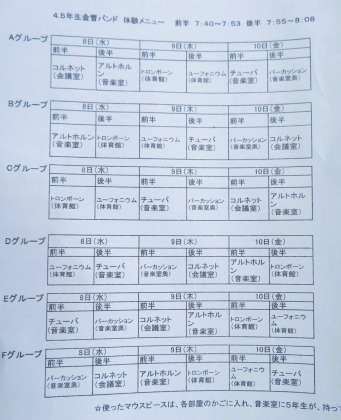 4.5年生金管バンド 体験メニュー 前半 7:40〜7:53 後半 7:55〜8:08
Aグループ
8日(水) 9日(木) 10日(金)
前半 後半 前半 後半 前半 後半
コルネット(会議室) アルトホルン(音楽室) トロンボーン(体育館) ユーフォニウム(体育館) チューバ(音楽室) パーカッション(音楽室奥)
Bグループ
8日(水) 9日(木) 10日(金)
前半 後半 前半 後半 前半 後半
アルトホルン(音楽室) トロンボーン(体育館) ユーフォニウム(体育館) チューバ(音楽室) パーカッション(音楽室奥) コルネット(会議室)
Cグループ
8日(水) 9日(木) 10日(金)
前半 後半 前半 後半 前半 後半
トロンボーン(体育館) ユーフォニウム(体育館) チューバ(音楽室) パーカッション(音楽室奥) コルネット(会議室) アルトホルン(音楽室)
Dグループ
8日(水) 9日(木) 10日(金)
前半 後半 前半 後半 前半 後半
ユーフォニウム(体育館) チューバ(音楽室) パーカッション(音楽室奥) コルネット(会議室) アルトホルン(音楽室) トロンボーン(体育館)
Eグループ
8日(水) 9日(木) 10日(金)
前半 後半 前半 後半 前半 後半
チューバ(音楽室) パーカッション(音楽室奥) コルネット(会議室) アルトホルン(音楽室) トロンボーン(体育館) ユーフォニウム(体育館)
Fグループ
8日(水) 9日(木) 10日(金)
前半 後半 前半 後半 前半 後半
パーカッション(音楽室奥) コルネット(会議室) アルトホルン(音楽室) トロンボーン(体育館) ユーフォニウム(体育館) チューバ(音楽室)
☆使ったマウスピースは、各部屋のかごに入れ、音楽室に5年生が、持っ